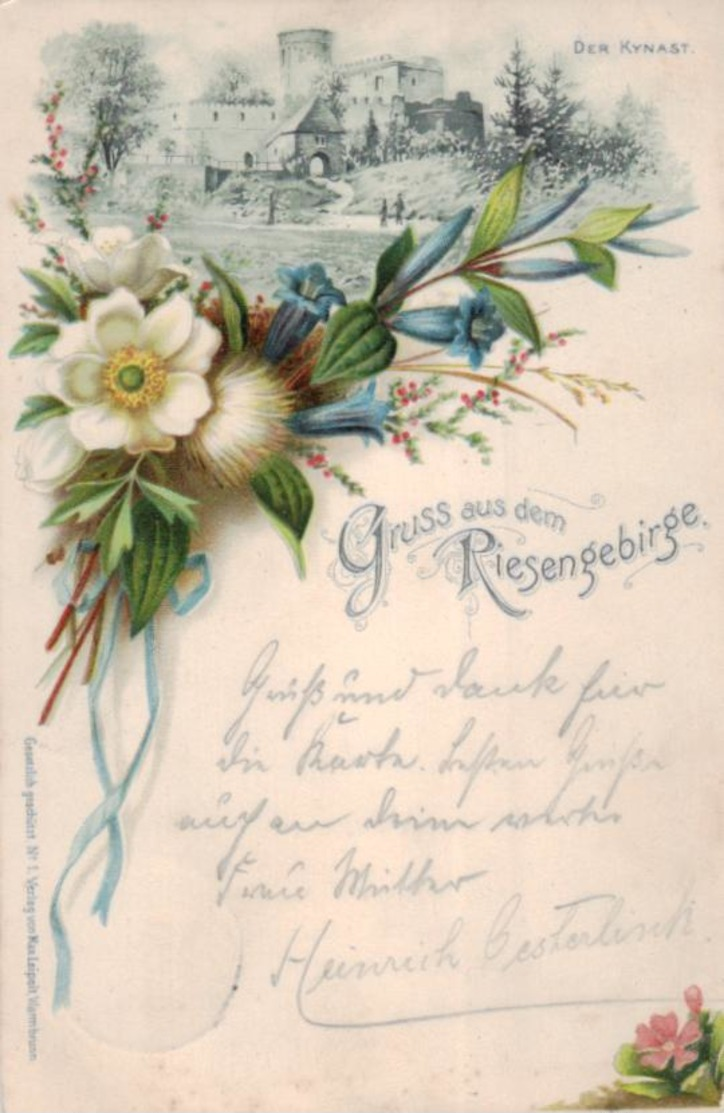 DER KYNAST.
Gruss aus dem
Riesengebirge.
Gruß und Dank für
die Karte. Besten Grüße
auch an deine werte
Frau Mutter
Heinrich Oesterlink
Gesetzlich geschützt Nº 1. Verlag von Max Leipelt Warmbrunn